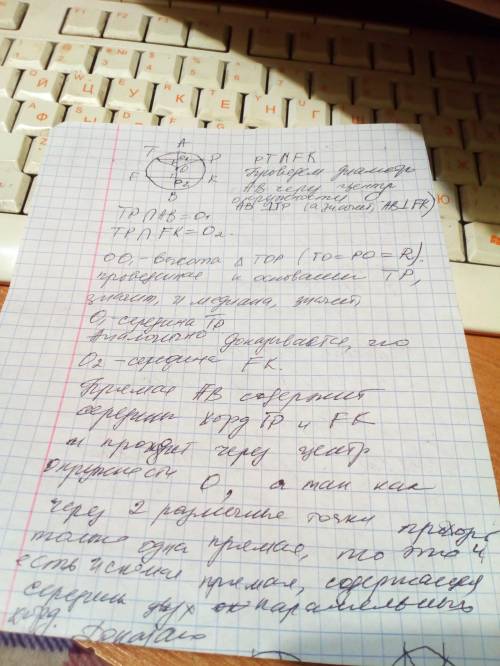 A
T P
O1
O
F K
O2
B
PT || FK
Проведем диаметр
AB через центр
окружности O
AB ⊥ TP (а значит, AB ⊥ FK)
TP ∩ AB = O1
TP ∩ FK = O2.
OO1 - высота △ TOP (TO = PO = R).
проведенная к основанию TP,
значит, и медиана, значит
O1 - середина TP
Аналогично доказывается, что
O2 - середина FK.
Прямая AB содержит
середины хорд TP и FK
и проходит через центр
окружности O, а так как
через 2 различные точки проходит
только одна прямая, то это и
есть искомая прямая, содержащая
середины двух параллельных
хорд. Доказано